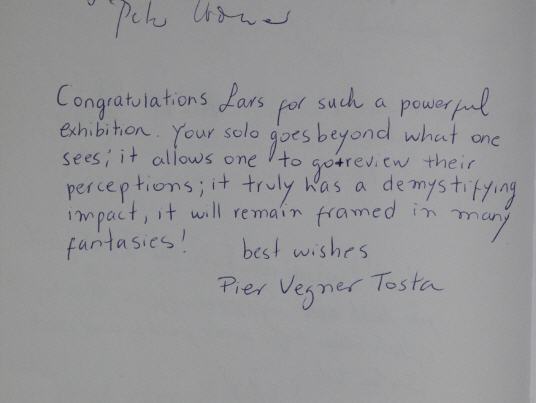 Congratulations Lars for such a powerful
exhibition. Your solo goes beyond what one
sees; it allows one to go+review their
perceptions; it truly has a demystifying
impact, it will remain framed in many
fantasies!
best wishes
Pier Vegner Tosta